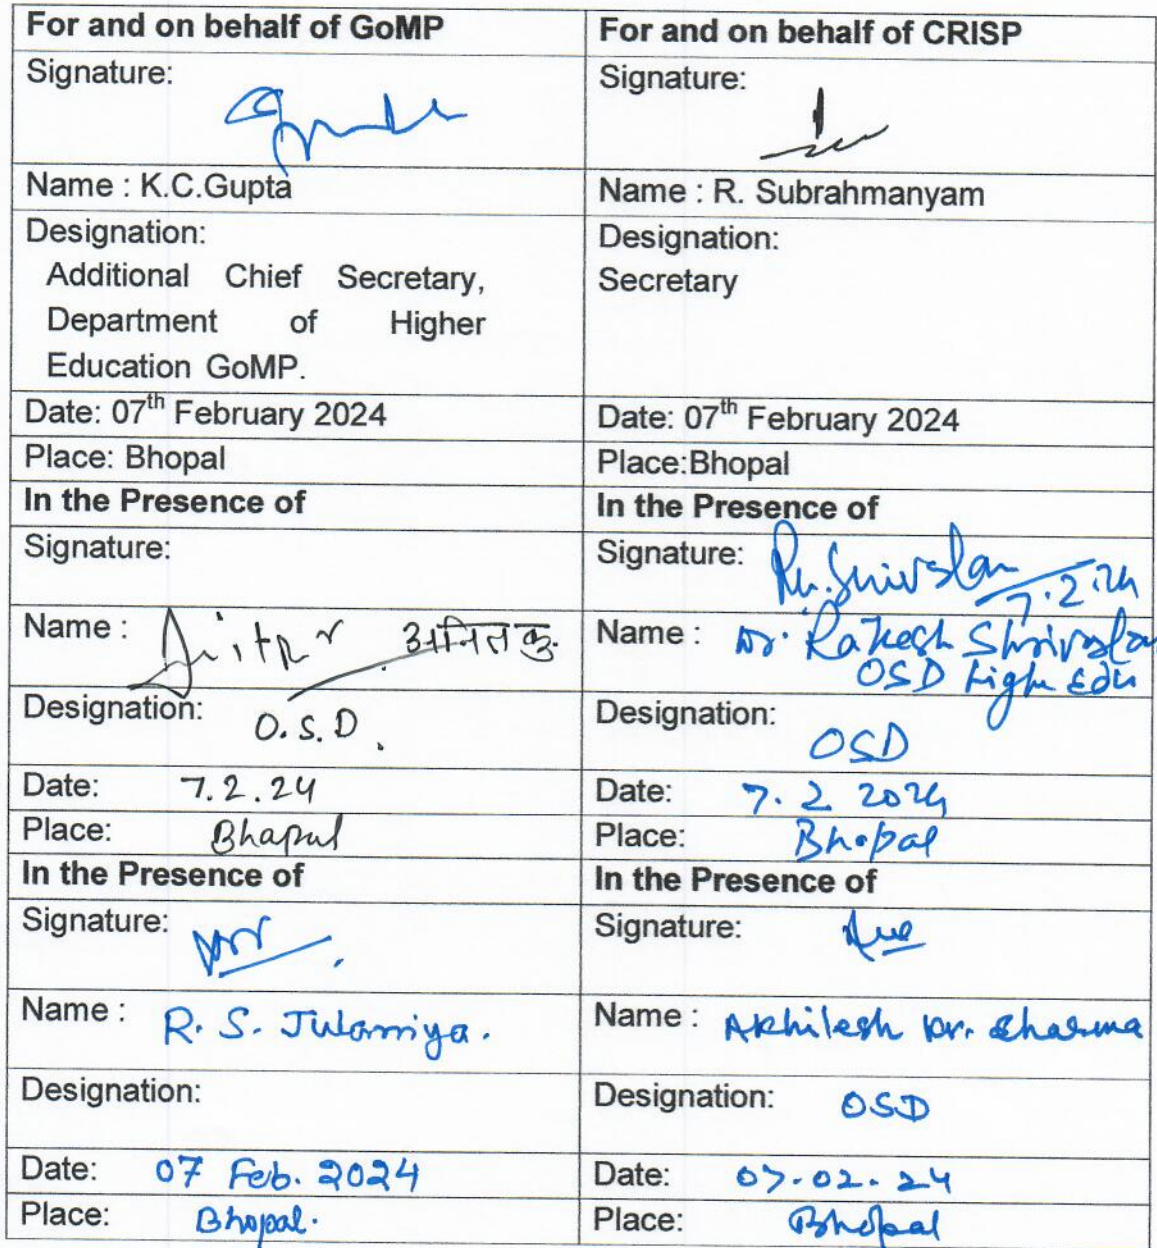 For and on behalf of GoMP
For and on behalf of CRISP
Signature:
Signature:
Name : K.C.Gupta
Name : R. Subrahmanyam
Designation:
Additional Chief Secretary,
Department of Higher
Education GoMP.
Designation:
Secretary
Date: 07th February 2024
Date: 07th February 2024
Place: Bhopal
Place:Bhopal
In the Presence of
In the Presence of
Signature:
Signature: 7.2.24
Name :
Name : Dr. Rakesh Shrivastav
OSD High Edu
Designation: O.S.D.
Designation: OSD
Date: 7.2.24
Date: 7.2 2024
Place: Bhopal
Place: Bhopal
In the Presence of
In the Presence of
Signature:
Signature:
Name : R. S. Julaniya.
Name : Akhilesh Kr. Sharma
Designation:
Designation: OSD
Date: 07 Feb. 2024
Date: 07.02.24
Place: Bhopal.
Place: Bhopal